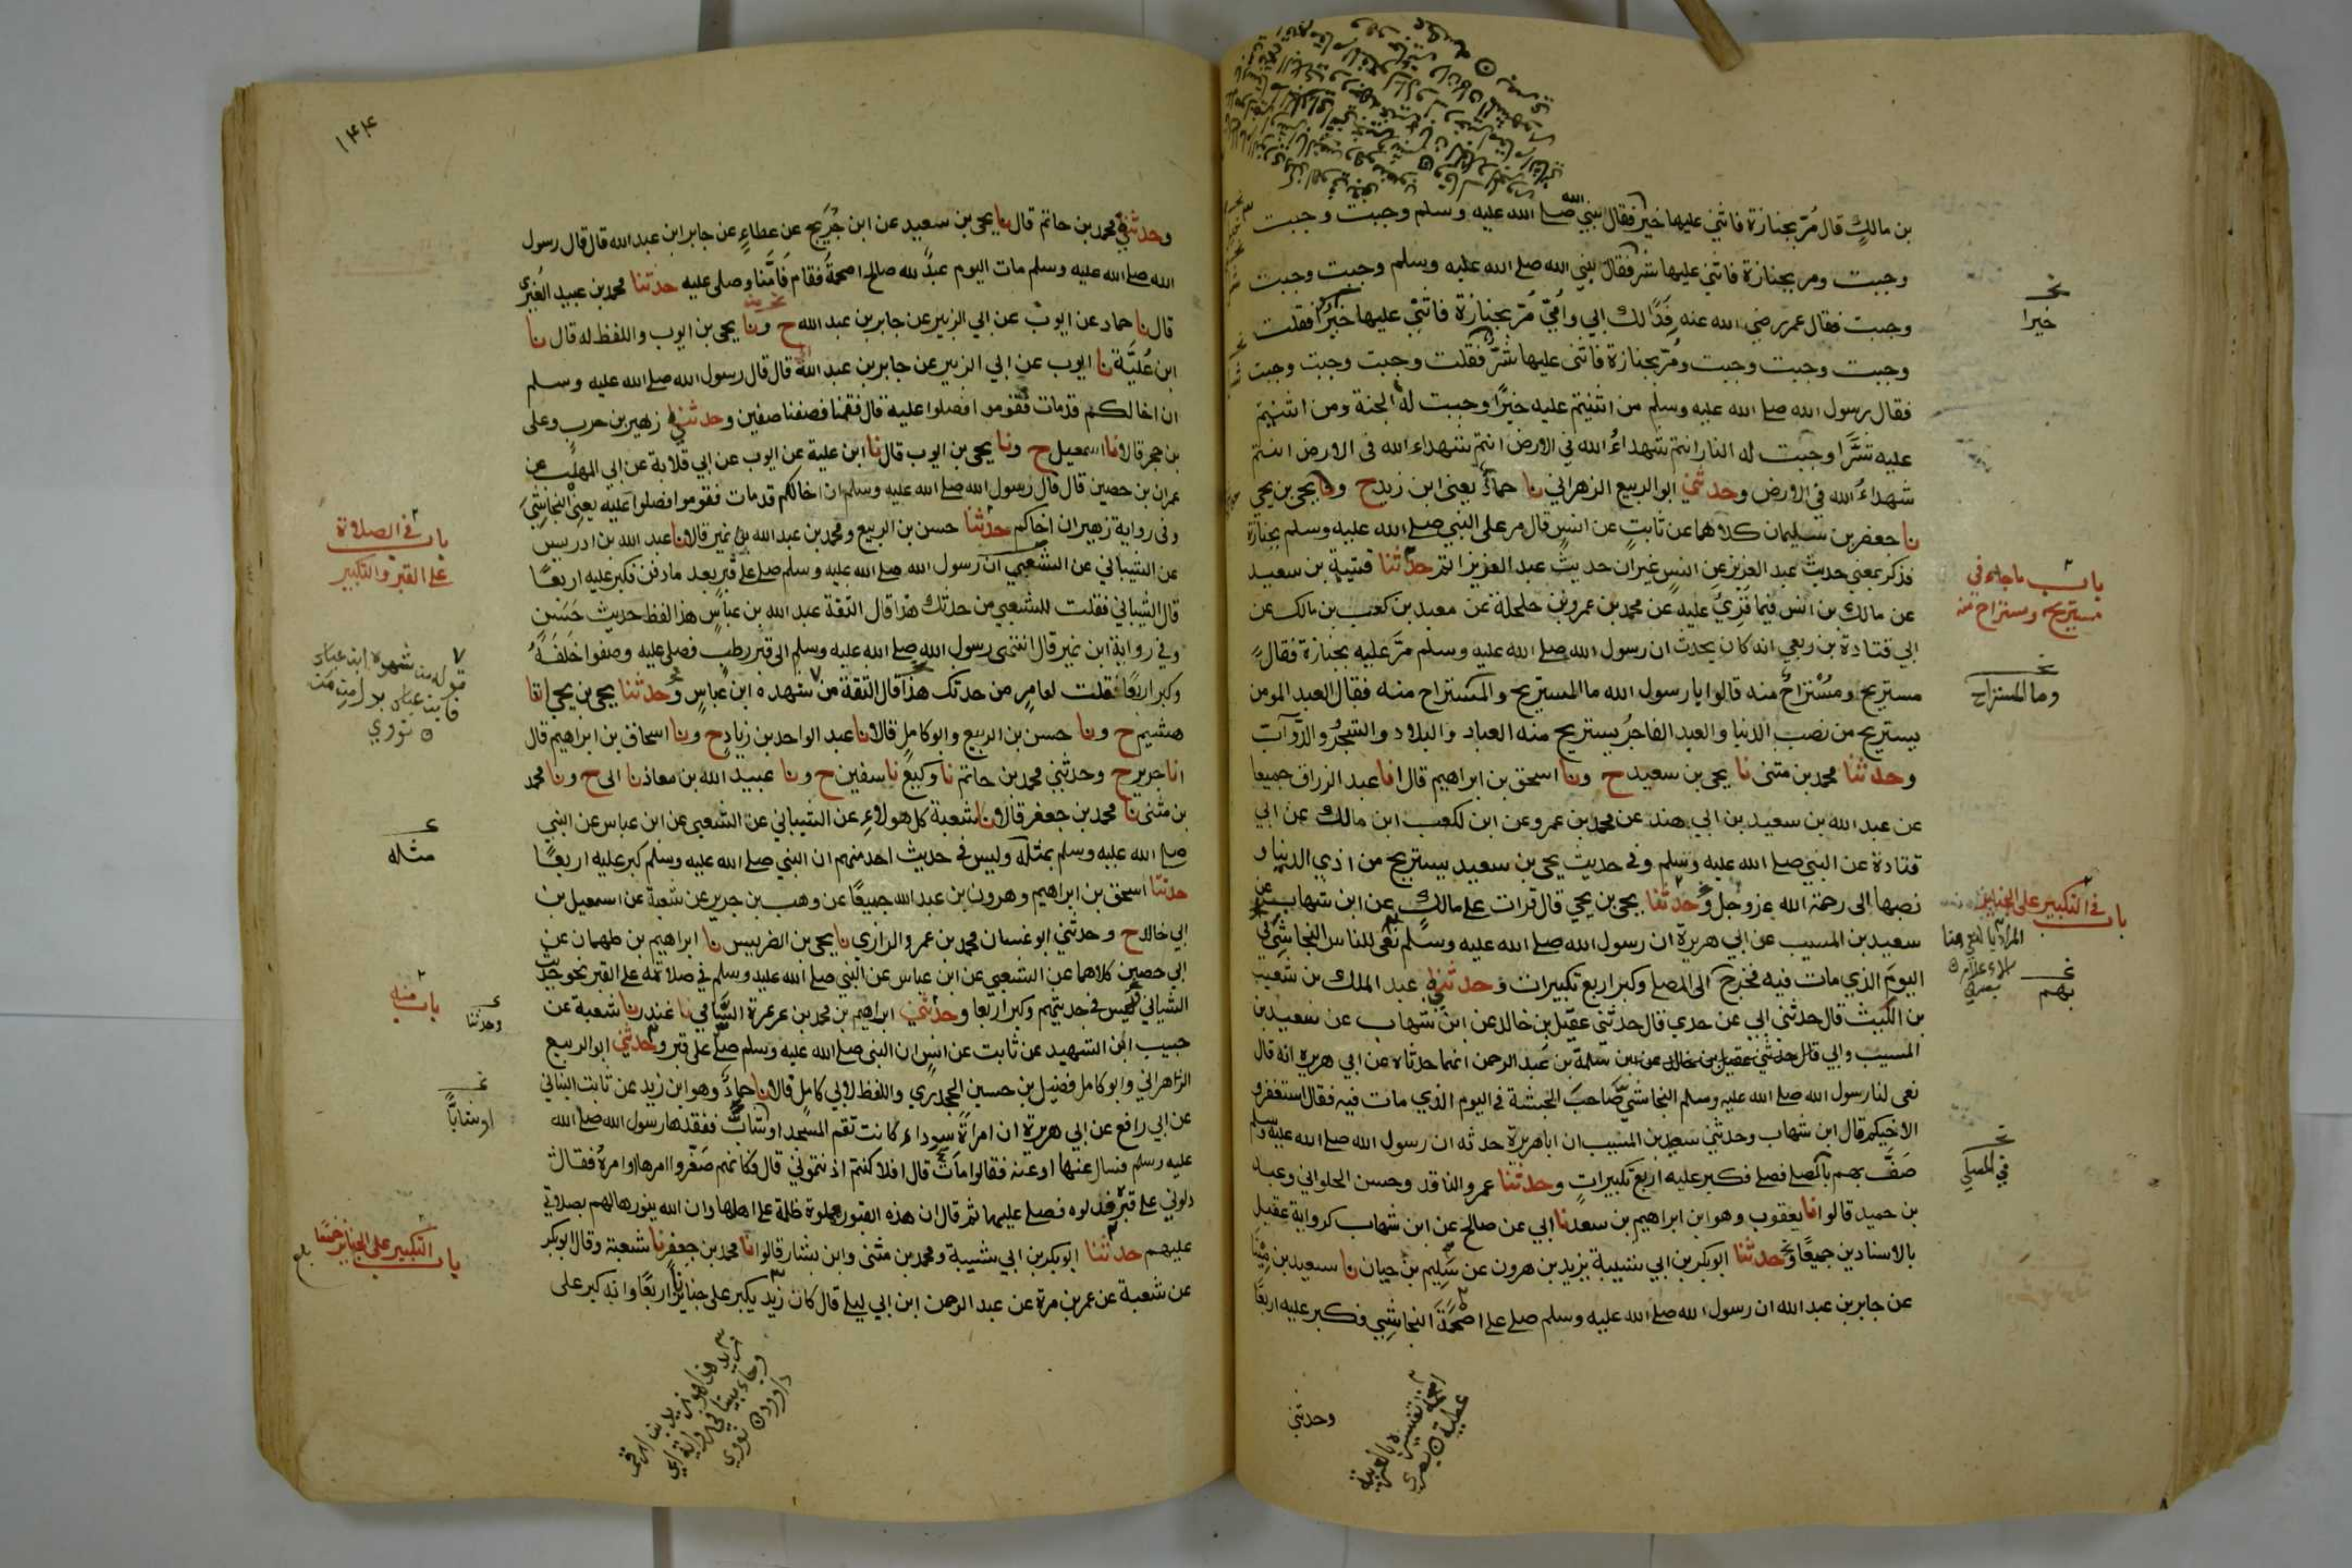 بن مالكٍ قال مُرّ بجنازة فاثني عليها خير فقال نبي الله صلى الله عليه وسلم وجبت وجبت
وجبت ومر بجنازة فاثني عليها شر فقال نبي الله صلى الله عليه وسلم وجبت وجبت وجبت
وجبت فقال عمر رضي الله عنه فدًا لك ابي وامّي مُرّ بجنازة فاثني عليها خيرٌ فقلت
وجبت وجبت وجبت ومُرّ بجنازة فاثنى عليها شرّ فقلت وجبت وجبت وجبت
فقال رسول الله صلى الله عليه وسلم من اثنيتم عليه خيرًا وجبت له الجنة ومن اثنيتم
عليه شرًّا وجبت له النار انتم شهداءُ الله في الارض انتم شهداء الله في الارض انتم
شهداءُ الله في الارض وحدثني ابو الربيع الزهراني نا حمادٌ يعنى ابن زيد ح ونا يحيى بن يحيى
نا جعفر بن سليمان كلاهما عن ثابتٍ عن انسٍ قال مر على النبي صلى الله عليه وسلم بجنازة
فذكر بمعنى حديث عبد العزيز عن انس غير ان حديث عبد العزيز اتم حدثنا قتيبة بن سعيد
عن مالك بن انس فيما قرئ عليه عن محمد بن عمرو بن حلحلة عن معبد بن كعب بن مالك عن
ابي قتادة بن ربعي انه كان يحدث ان رسول الله صلى الله عليه وسلم مرّ عليه بجنازة فقال
مستريح ومُسْتَراحٌ منه قالوا يا رسول الله ما المستريح والمستراح منه فقال العبد المومن
يستريح من نصب الدنيا والعبد الفاجرُ يستريح منه العباد والبلاد والشجرُ والدّوآبّ
وحدثنا محمد بن مثنى نا يحيى بن سعيد ح ونا اسحق بن ابراهيم قال انا عبد الرزاق جميعا
عن عبد الله بن سعيد بن ابي هند عن محمد بن عمرو عن ابن لكعب ابن مالك عن ابي
قتادة عن النبي صلى الله عليه وسلم وفي حديث يحيى بن سعيد يستريح من اذي الدنيا و
نصبها الى رحمة الله عز وجلّ وحدثنا يحيى بن يحيى قال قرات على مالك عن ابن شهاب عن
سعيد بن المسيب عن ابي هريرة ان رسول الله صلى الله عليه وسلم نعى للناس النجاشي في
اليوم الذي مات فيه فخرج الى المصلى وكبر اربع تكبيرات وحدثني عبد الملك بن شعيب
بن الليث قال حدثني ابي عن جدي قال حدثني عقيل بن خالد عن ابن شهاب عن سعيد بن
المسيب وابي سلمة بن عبد الرحمن انهما حدثاه عن ابي هريره انه قال
نعى لنا رسول الله صلى الله عليه وسلم النجاشيّ صاحبَ الحبشة في اليوم الذي مات فيه فقال استغفرو
الاخيكم قال ابن شهاب وحدثني سعيد بن المسيب ان اباهريرة حدثه ان رسول الله صلى الله عليه وسلم
صَفَّ بهم بالمصلى فصلى فكبر عليه اربع تكبيراتٍ وحدثنا عمرو الناقد وحسن الحلواني وعبد
بن حميد قالوا انا يعقوب وهو ابن ابراهيم بن سعد نا ابي عن صالح عن ابن شهاب كرواية عقيل
بالاسنادين جميعًا وحدثنا ابو بكر بن ابي شيبة يزيد بن هرون عن سَلِيم بن حيان نا سعيد بن مينا
عن جابر بن عبد الله ان رسول الله صلى الله عليه وسلم صلى على اصحمَةَ النجاشِي فكبر عليه اربعًا
وحدثني
خيرا
باب ما جاء في
مستريح ومستراح منه
وما المستراح
باب في التكبير على الجنايز
بهم
في المصلى
١٤٤
وحدثني محمد بن حاتم قال نا يحيى بن سعيد عن ابن جُرَيج عن عطاءٍ عن جابر ابن عبد الله قال قال رسول
الله صلى الله عليه وسلم مات اليوم عبدٌ لله صالح اصحمةُ فقام فَامّنا وصلى عليه حدثنا محمد بن عبيد الغُبَري
قال نا حماد عن ايوب عن ابي الزبير عن جابر بن عبد الله ح ونا يحيى بن ايوب واللفظ له قال نا
ابن عُلَيَّة نا ايوب عن ابي الزبير عن جابر بن عبد الله قال قال رسول الله صلى الله عليه وسلم
ان اخا لكم قد مات فقوموا فصلوا عليه قال فقمنا فصفنا صفين وحدثني زهير بن حرب وعلى
بن حجر قالا نا اسمعيل ح ونا يحيى بن ايوب قال نا ابن علية عن ايوب عن ابي قلابة عن ابي المهلّب عن
عمران بن حصين قال قال رسول الله صلى الله عليه وسلم ان اخالكم قد مات فقوموا فصلوا عليه يعني النجاشِيّ
وفي رواية زهير ان اخاكم حدثنا حسن بن الربيع ومحمد بن عبد الله بن نمير قالا نا عبد الله بن ادريس
عن الشيباني عن الشعبي ان رسول الله صلى الله عليه وسلم صلى على قبر بعد ما دفن فكبر عليه اربعًا
قال الشيباني فقلت للشعبي من حدثك هذا قال الثقة عبد الله بن عباسٍ هذا لفظ حديث حَسَنٍ
وفي رواية ابن نمير قال انتهى رسول الله صلى الله عليه وسلم الى قبر رطب فصلى عليه وصفوا خَلفَهُ
وكبر اربعًا فقلت لعامرٍ من حدثك هذا قال الثقة من شهده ابن عباسٍ وحدثنا يحيى بن يحيى انا
هشيم ح ونا حسن بن الربيع وابو كاملٍ قالا نا عبد الواحد بن زيادٍ ح ونا اسحاق بن ابراهيم قال
انا جرير ح وحدثني محمد بن حاتم نا وكيعٌ نا سفين ح ونا عبيد الله بن معاذ نا ابي ح ونا محمد
بن مثنى نا محمد بن جعفر قالا نا شعبة كل هولاءِ عن الشيباني عن الشعبي عن ابن عباس عن النبي
صلى الله عليه وسلم بمثله وليس في حديث احد منهم ان النبي صلى الله عليه وسلم كبر عليه اربعًا
حدثنا اسحق بن ابراهيم وهرون بن عبد الله جميعًا عن وهب بن جرير عن شعبة عن اسمعيل بن
ابي خالد ح وحدثني ابو غسان محمد بن عمرو الرازي نا يحيى بن الضريس نا ابراهيم بن طهمان عن
ابي حصين كلاهما عن الشعبي عن ابن عباس عن النبي صلى الله عليه وسلم في صلاته على القبر نحو حديث
الشيباني ليس في حديثهم وكبر اربعا وحدثني ابراهيم بن محمد بن عرعرة السّامي نا غندر نا شعبة عن
حبيب ابن الشهيد عن ثابت عن انسٍ ان النبي صلى الله عليه وسلم صلى على قبر وحدثني ابو الربيع
الزاهراني وابو كامل فضيل بن حسين الجحدري واللفظ لابي كاملٍ قالا نا حمادٌ وهو ابن زيد عن ثابت البناني
عن ابي رافع عن ابي هريرة ان امراةً سوداء كانت تقم المسجد او شابٌّ ففقدها رسول الله صلى الله
عليه وسلم فسال عنها او عنه فقالوا مات قال افلا كنتم اذنتموني قال فكانهم صغّروا امرها او امرهُ فقال
دلوني على قبره فدلوه فصلى عليها ثم قال ان هذه القبور مملوة ظلمة على اهلها وان الله ينورها لهم بصلاتي
عليهم حدثنا ابو بكر بن ابي شيبة ومحمد بن مثنى وابن بشار قالوا نا محمد بن جعفر نا شعبة وقال ابو بكر
عن شعبة عن عمر بن مرة عن عبد الرحمن ابن ابي ليلى قال كان زيد يكبر على جنايزنا اربعًا وانه كبر على
باب في الصلاة
على القبر والتكبير
قوله من شهده ابن عباس
فابن عباس بدل من من
نووي
مثله
باب منه
وحدثنا
او شابًّا
باب التكبير على الجنايز خمسًا